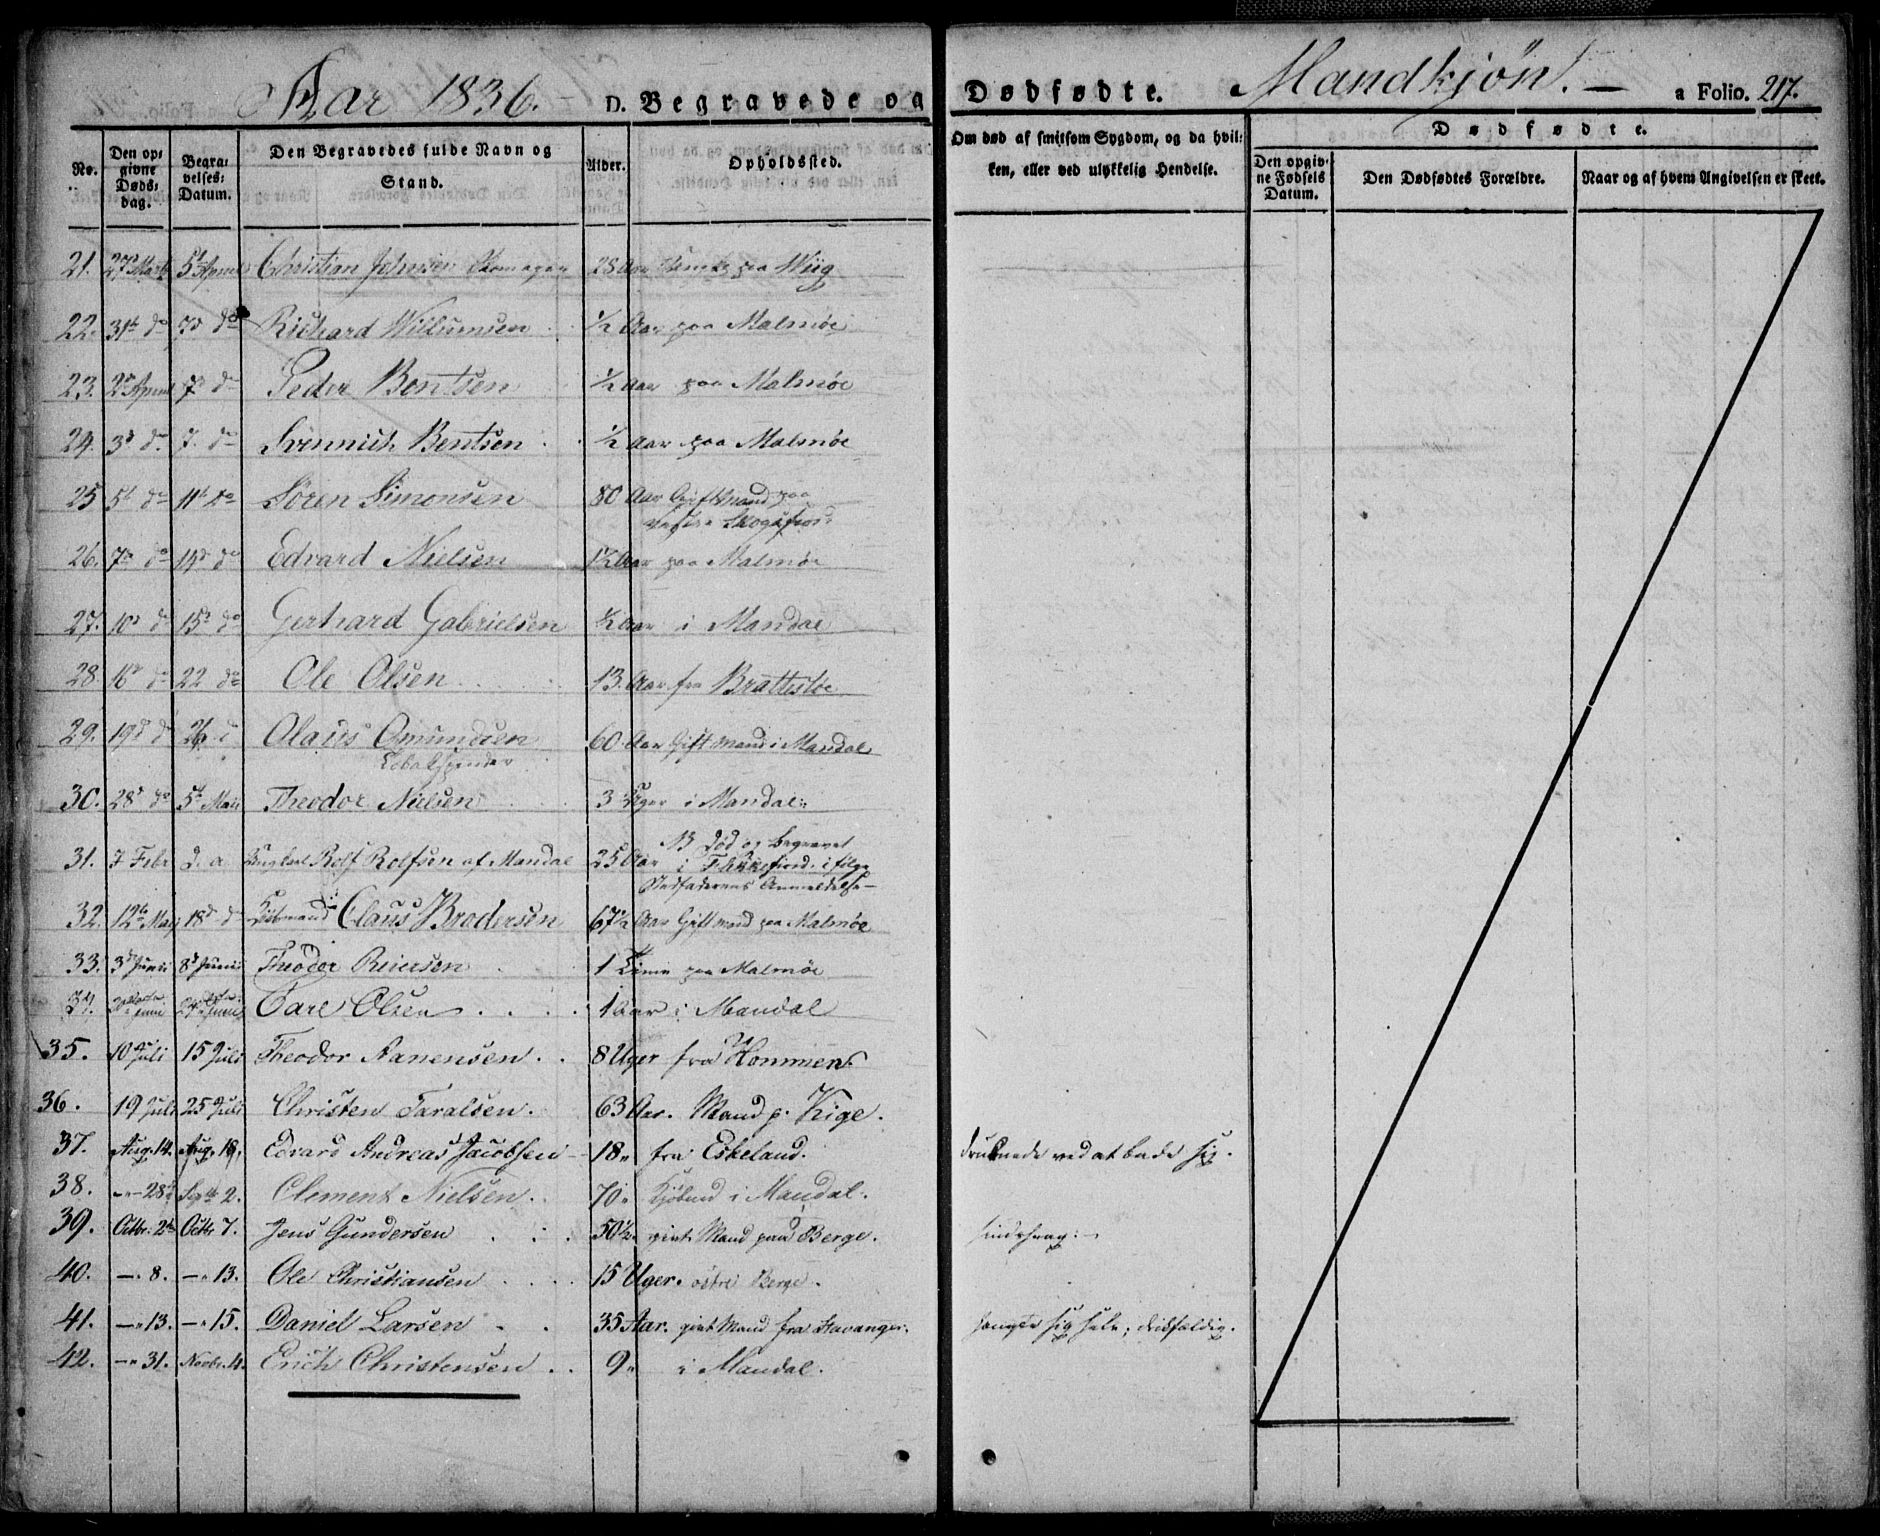 Aar 1836. D. Begravede og Dødfødte. Mandkjøn. a Folio. 217.
No.
Den opgivne Dødsdag.
Begravelses-Datum.
Den Begravedes fulde Navn og Stand.
Alder.
Opholdssted.
Om død af smitsom Sygdom, og da hvilken, eller ved ulykkelig Hendelse.
Dødfødte.
Den opgivne Fødsels Datum.
Den Dødfødtes Forældre.
Naar og af hvem Angivelsen er skeet.
21. 27d Marts 5t April Christian Johnsen 28 Aar paa Wiig
22. 31t do 7d do Richard Willumsen ½ Aar paa Malmøe
23. 2d April 7d do Peder Bentsen ½ Aar paa Malmøe
24. 3d do. 7. do Svennich Bentsen ½ Aar paa Malmøe
25 5t do 11t do Søren Simonsen 80 Aar Gift Mand paa
26. 7de do 14d do Edvard Nielsen 1½ Aar paa Malmøe
27. 10d do 15d do Gerhard Gabrielsen ½ Aar i Mandal
28. 16d do 22 do Ole Olsen 13. Aar fra Brattestøe
29. 19d do 26 d Olaus Omundsen 60 Aar Gift Mand i Mandal
30. 28d do 5t Mai Theodor Nielsen 3 Uger i Mandal
31. 7 Febr d. a Ungkarl Rolf Rolfsen af Mandal 25 Aar NB død og begravet
i Flekkefiord. ifølge
Stedfaderens Anmeldelse
32. 12te May 18d do Claus Brodersen 67½ Aar Gift Mand paa Malmøe
33. 3d Juni 8d Junii Theodor Reiersen 1 Time paa Malmøe
34. Carl Olsen 1 Aar i Mandal
35. 10 Juli 15 Juli Theodor Aanensen 8 Uger fra Hommen
36. 19 Juli 25 Juli Christen Taralsen. 63 Aar. Mand p. Kige.
37. Aug. 14. Aug. 19. Edvard Andreas Jacobsen 18 „ fra Eskeland. druknede ved at bade sig.
38. — 28 Septb 2. Clement Nielsen. 70 „ Kjøbmd i Mandal.
39. Octbr. 2de Octbr 7. Jens Gundersen 50½ givt Mand paa Berge.
40. — 8. — 13. Ole Christiansen 15 Uger. østre Berge.
41. — 13. — 15. Daniel Larsen 35 Aar. givt Mand fra Stavanger. hængte sig selv;
42. — 31. Novbr. 4. Erich Christensen 9 „ i Mandal.